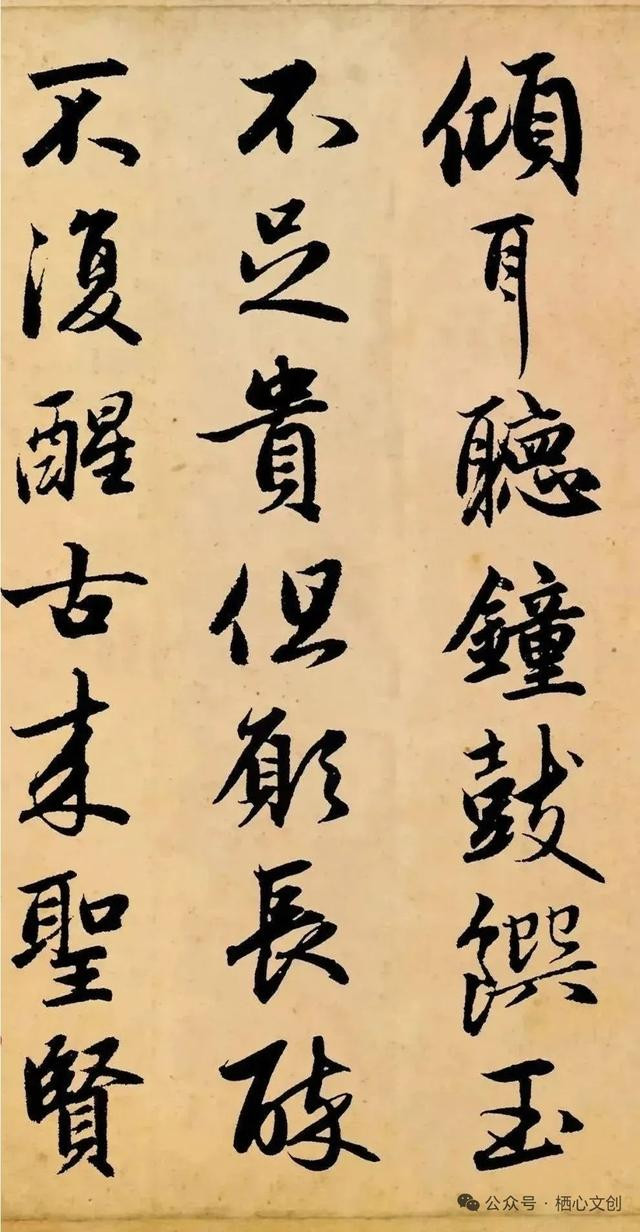 傾耳聽鐘鼓饌玉
不足貴但願長醉
不復醒古来聖賢
公众号·栖心文创